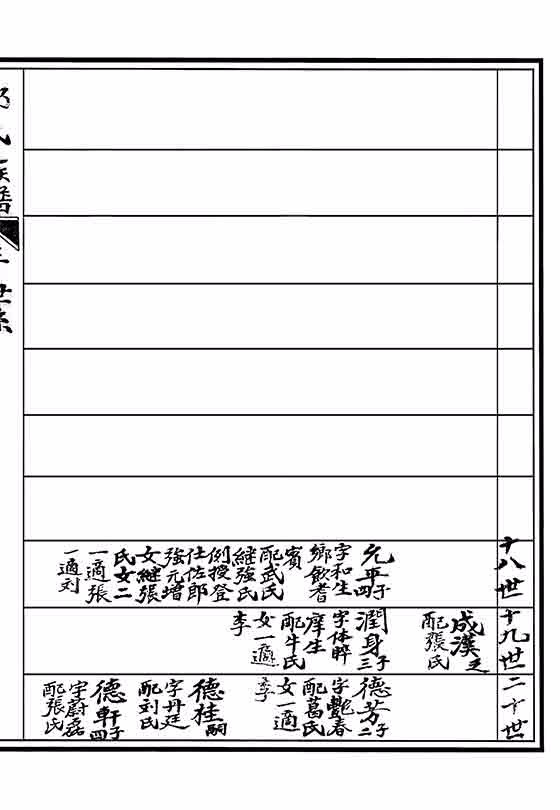 氏族譜
世系
十八世
元平四子
字和生
鄉飲耆
賓
配武氏
繼強氏
例授登
仕佐郎
強元增
女繼張
氏女二
一適張
一適刘
十九世
成漢之
配張氏
潤身三子
字体晬
庠生
配牛氏
女一適
李
二十世
德芳二子
字艷春
配葛氏
女一適
李
德桂嗣
字丹廷
配刘氏
德軒四子
字蔚磊
配張氏